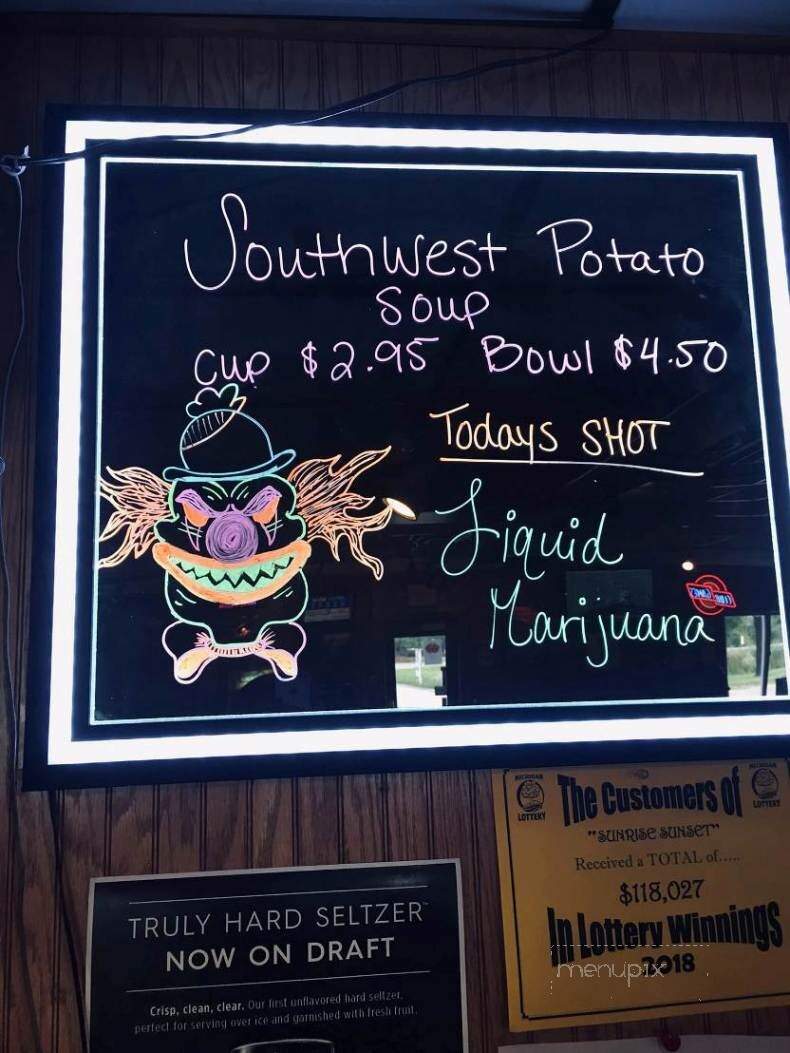 Southwest Potato
Soup
Cup $2.95 Bowl $4.50
Todays SHOT
Liquid
Marijuana
TRULY HARD SELTZER™
NOW ON DRAFT
Crisp, clean, clear. Our first unflavored hard seltzer,
perfect for serving over ice and garnished with fresh fruit.
MICHIGAN
LOTTERY
The Customers of
MICHIGAN
LOTTERY
"SUNRISE SUNSET"
Received a TOTAL of.....
$118,027
In Lottery Winnings
2018
menupix